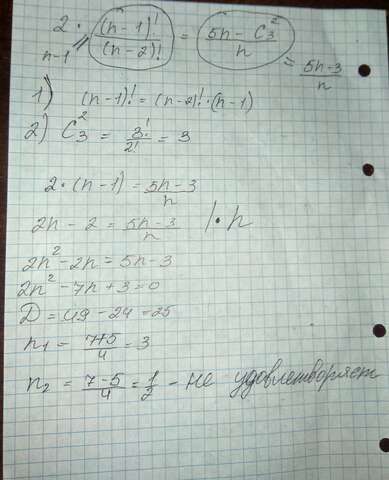 2 · (n-1)!/(n-2)! = (5n - C₃²)/n
n-1 // = (5n-3)/n
1) (n-1)! = (n-2)! · (n-1)
2) C₃² = 3!/2! = 3
2 · (n-1) = (5n-3)/n
2n - 2 = (5n-3)/n | · n
2n² - 2n = 5n - 3
2n² - 7n + 3 = 0
D = 49 - 24 = 25
n₁ = (7+5)/4 = 3
n₂ = (7-5)/4 = 1/2 - не удовлетворяет